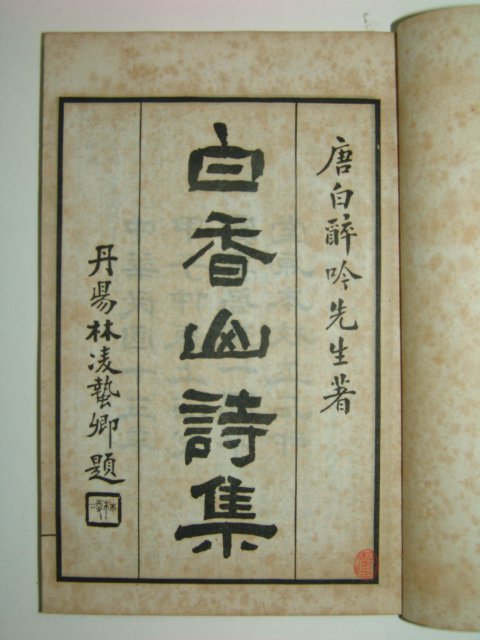 唐白醉吟先生著
白香山詩集
丹陽林凌蟄卿題